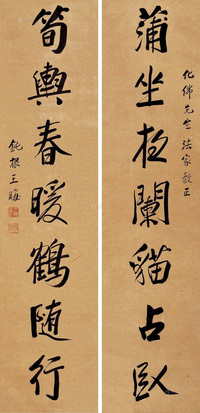 化佛先生法家教正
蒲坐夜闌貓占臥
筍輿春暖鶴随行
鈍根王晦